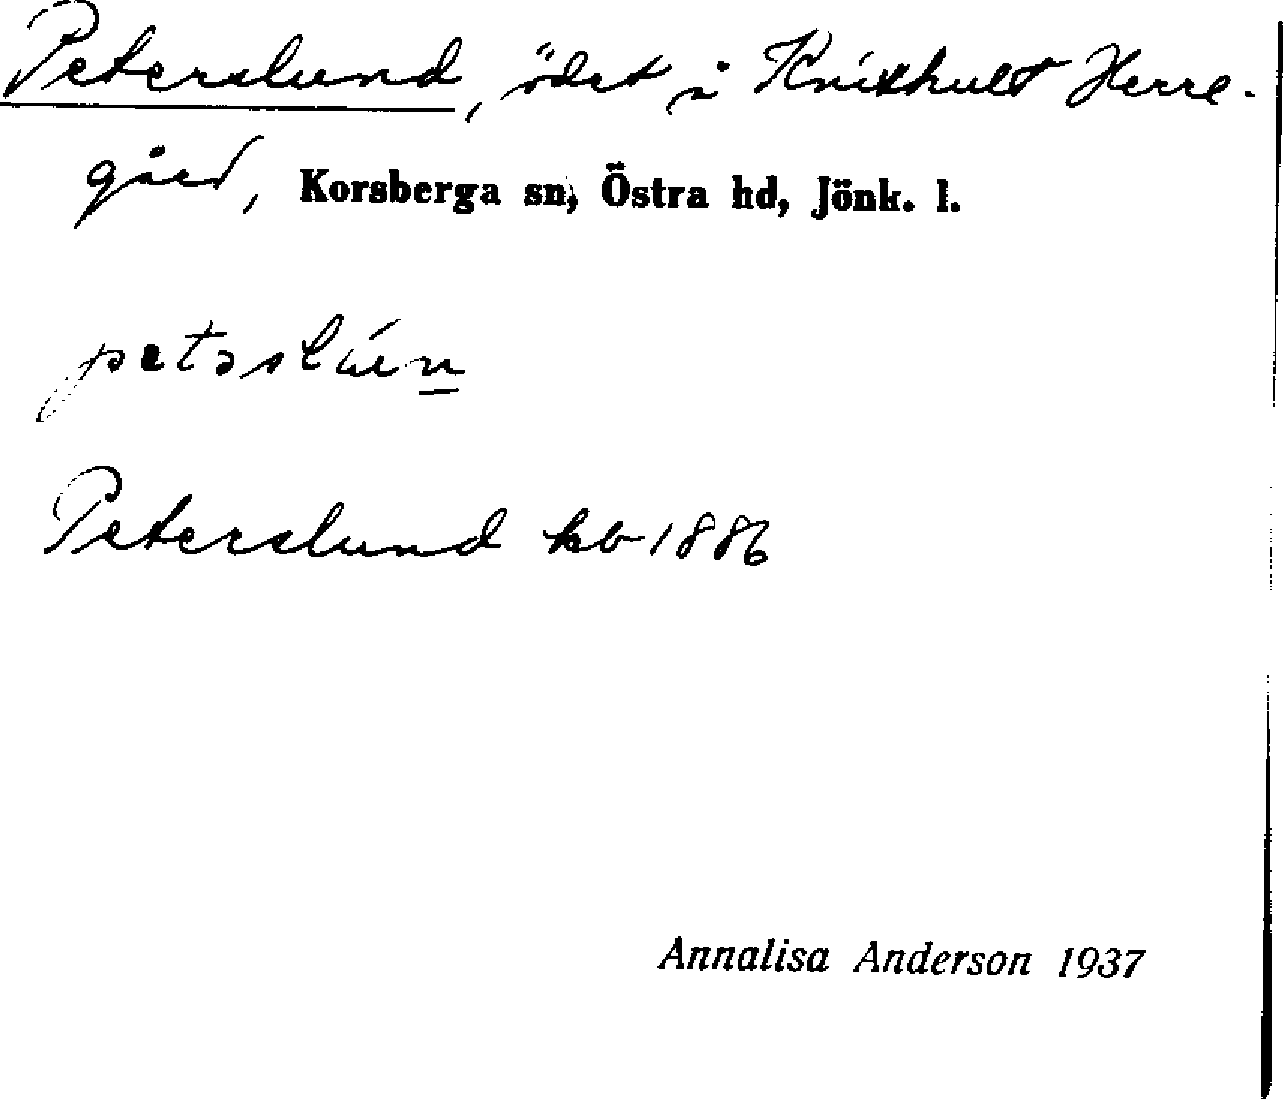 Peterslund, ödet i Knixhult Herre-
gård, Korsberga sn, Östra hd, Jönk. l.
Peterslund kb 1886
Annalisa Anderson 1937